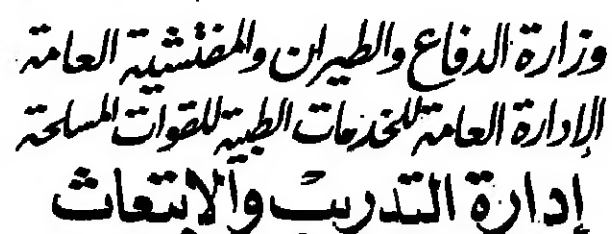 وزارة الدفاع والطيران والمفتشية العامة
الإدارة العامة للخدمات الطبية للقوات المسلحة
إدارة التدريب والابتعاث